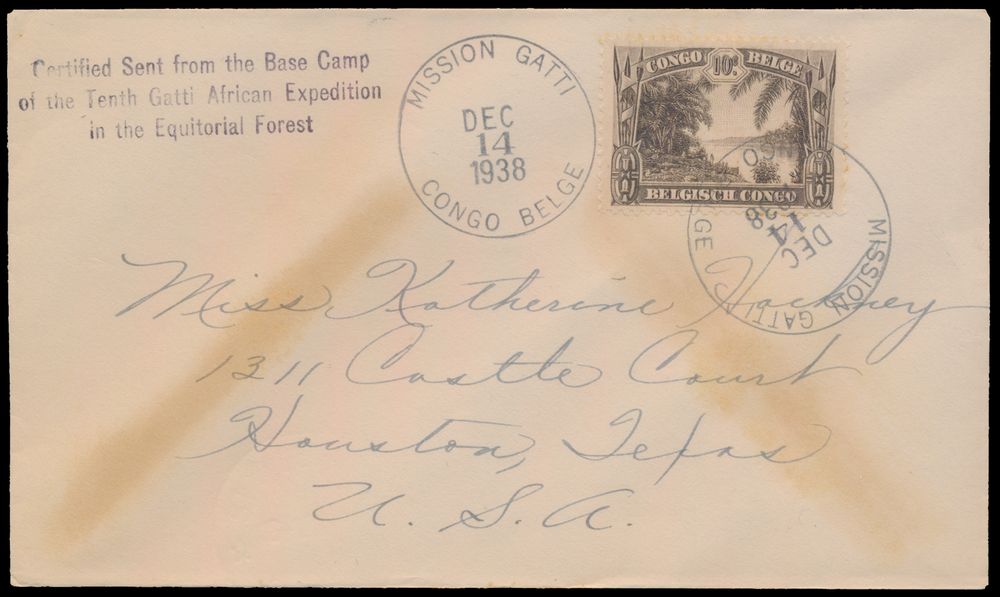 Certified Sent from the Base Camp
of the Tenth Gatti African Expedition
in the Equitorial Forest
MISSION GATTI
DEC
14
1938
CONGO BELGE
CONGO 10c. BELGE
BELGISCH CONGO
MISSION GATTI
DEC
14
38
CO LGE
Miss Katherine Hackney
1311 Castle Court
Houston, Texas
U. S. A.